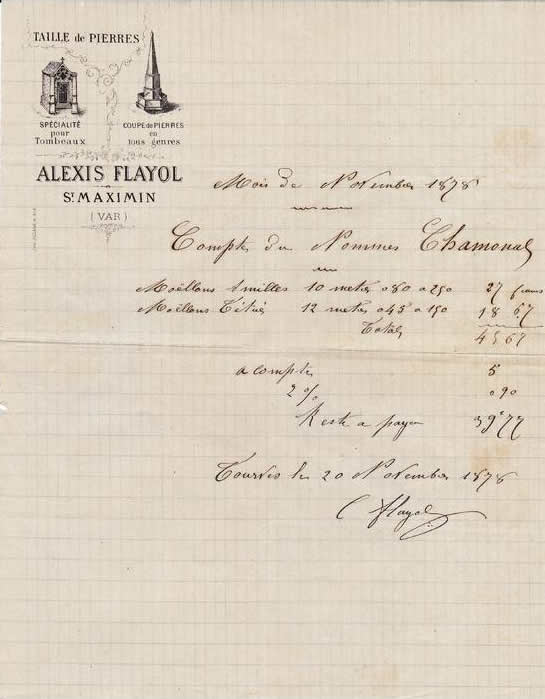 TAILLE de PIERRES
SPÉCIALITÉ
pour
Tombeaux
COUPE de PIERRES
en
tous genres
ALEXIS FLAYOL
ST MAXIMIN
(VAR)
Mois de Novembre 1878
Compte du Nommés Chamonal
Moëllons smillés 10 metres 080 a 250 27 francs
Moëllons Têtués 12 metres 045 a 150 18 67
Total 45 67
a compte 5
2 % 0 90
Reste a payer 39 77
Tourves le 20 Novembre 1878
flayol